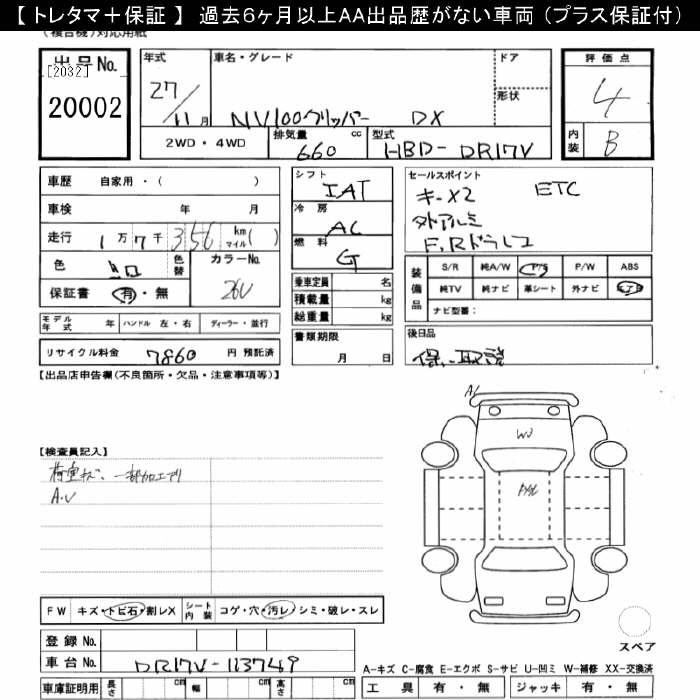 【 トレタマ＋保証 】 過去6ヶ月以上AA出品歴がない車両（プラス保証付）
(複合機)対応用紙
出品 No. [2032] 20002
年式 27/11月
車名・グレード NV100クリッパー DX
ドア
形状
評価点 4
内装 B
2WD・4WD
排気量 660 cc
型式 HBD-DR17V
車歴 自家用・( )
車検 年 月
走行 1万7千356 km マイル( )
色 シロ 色替 カラーNo. 26U
保証書 有・無
モデル年式 年 ハンドル 左・右 ディーラー・並行
リサイクル料金 7860 円 預託済
シフト IAT
冷房 AC
燃料 G
乗車定員 名
積載量 kg
総重量 kg
書類期限 月 日
セールスポイント
キーX2 ETC
外アルミ
F,Rドラレコ
装備品 S/R 純A/W P/S P/W ABS
純TV 純ナビ 革シート 外ナビ
ナビ型番：
後日品
保、取説
【出品店申告欄(不良箇所・欠品・注意事項等)】
【検査員記入】
一部加工アリ
A.U
A1
W3
FW キズ・トビ石・割レX シート内装 コゲ・穴・汚レ・シミ・破レ・スレ
登録 No.
車台 No. DR17V-113749
車庫証明用 長さ cm 幅 cm 高さ cm
スペア
A-キズ C-腐食 E-エクボ S-サビ U-凹ミ W-補修 XX-交換済
工具 有・無 ジャッキ 有・無